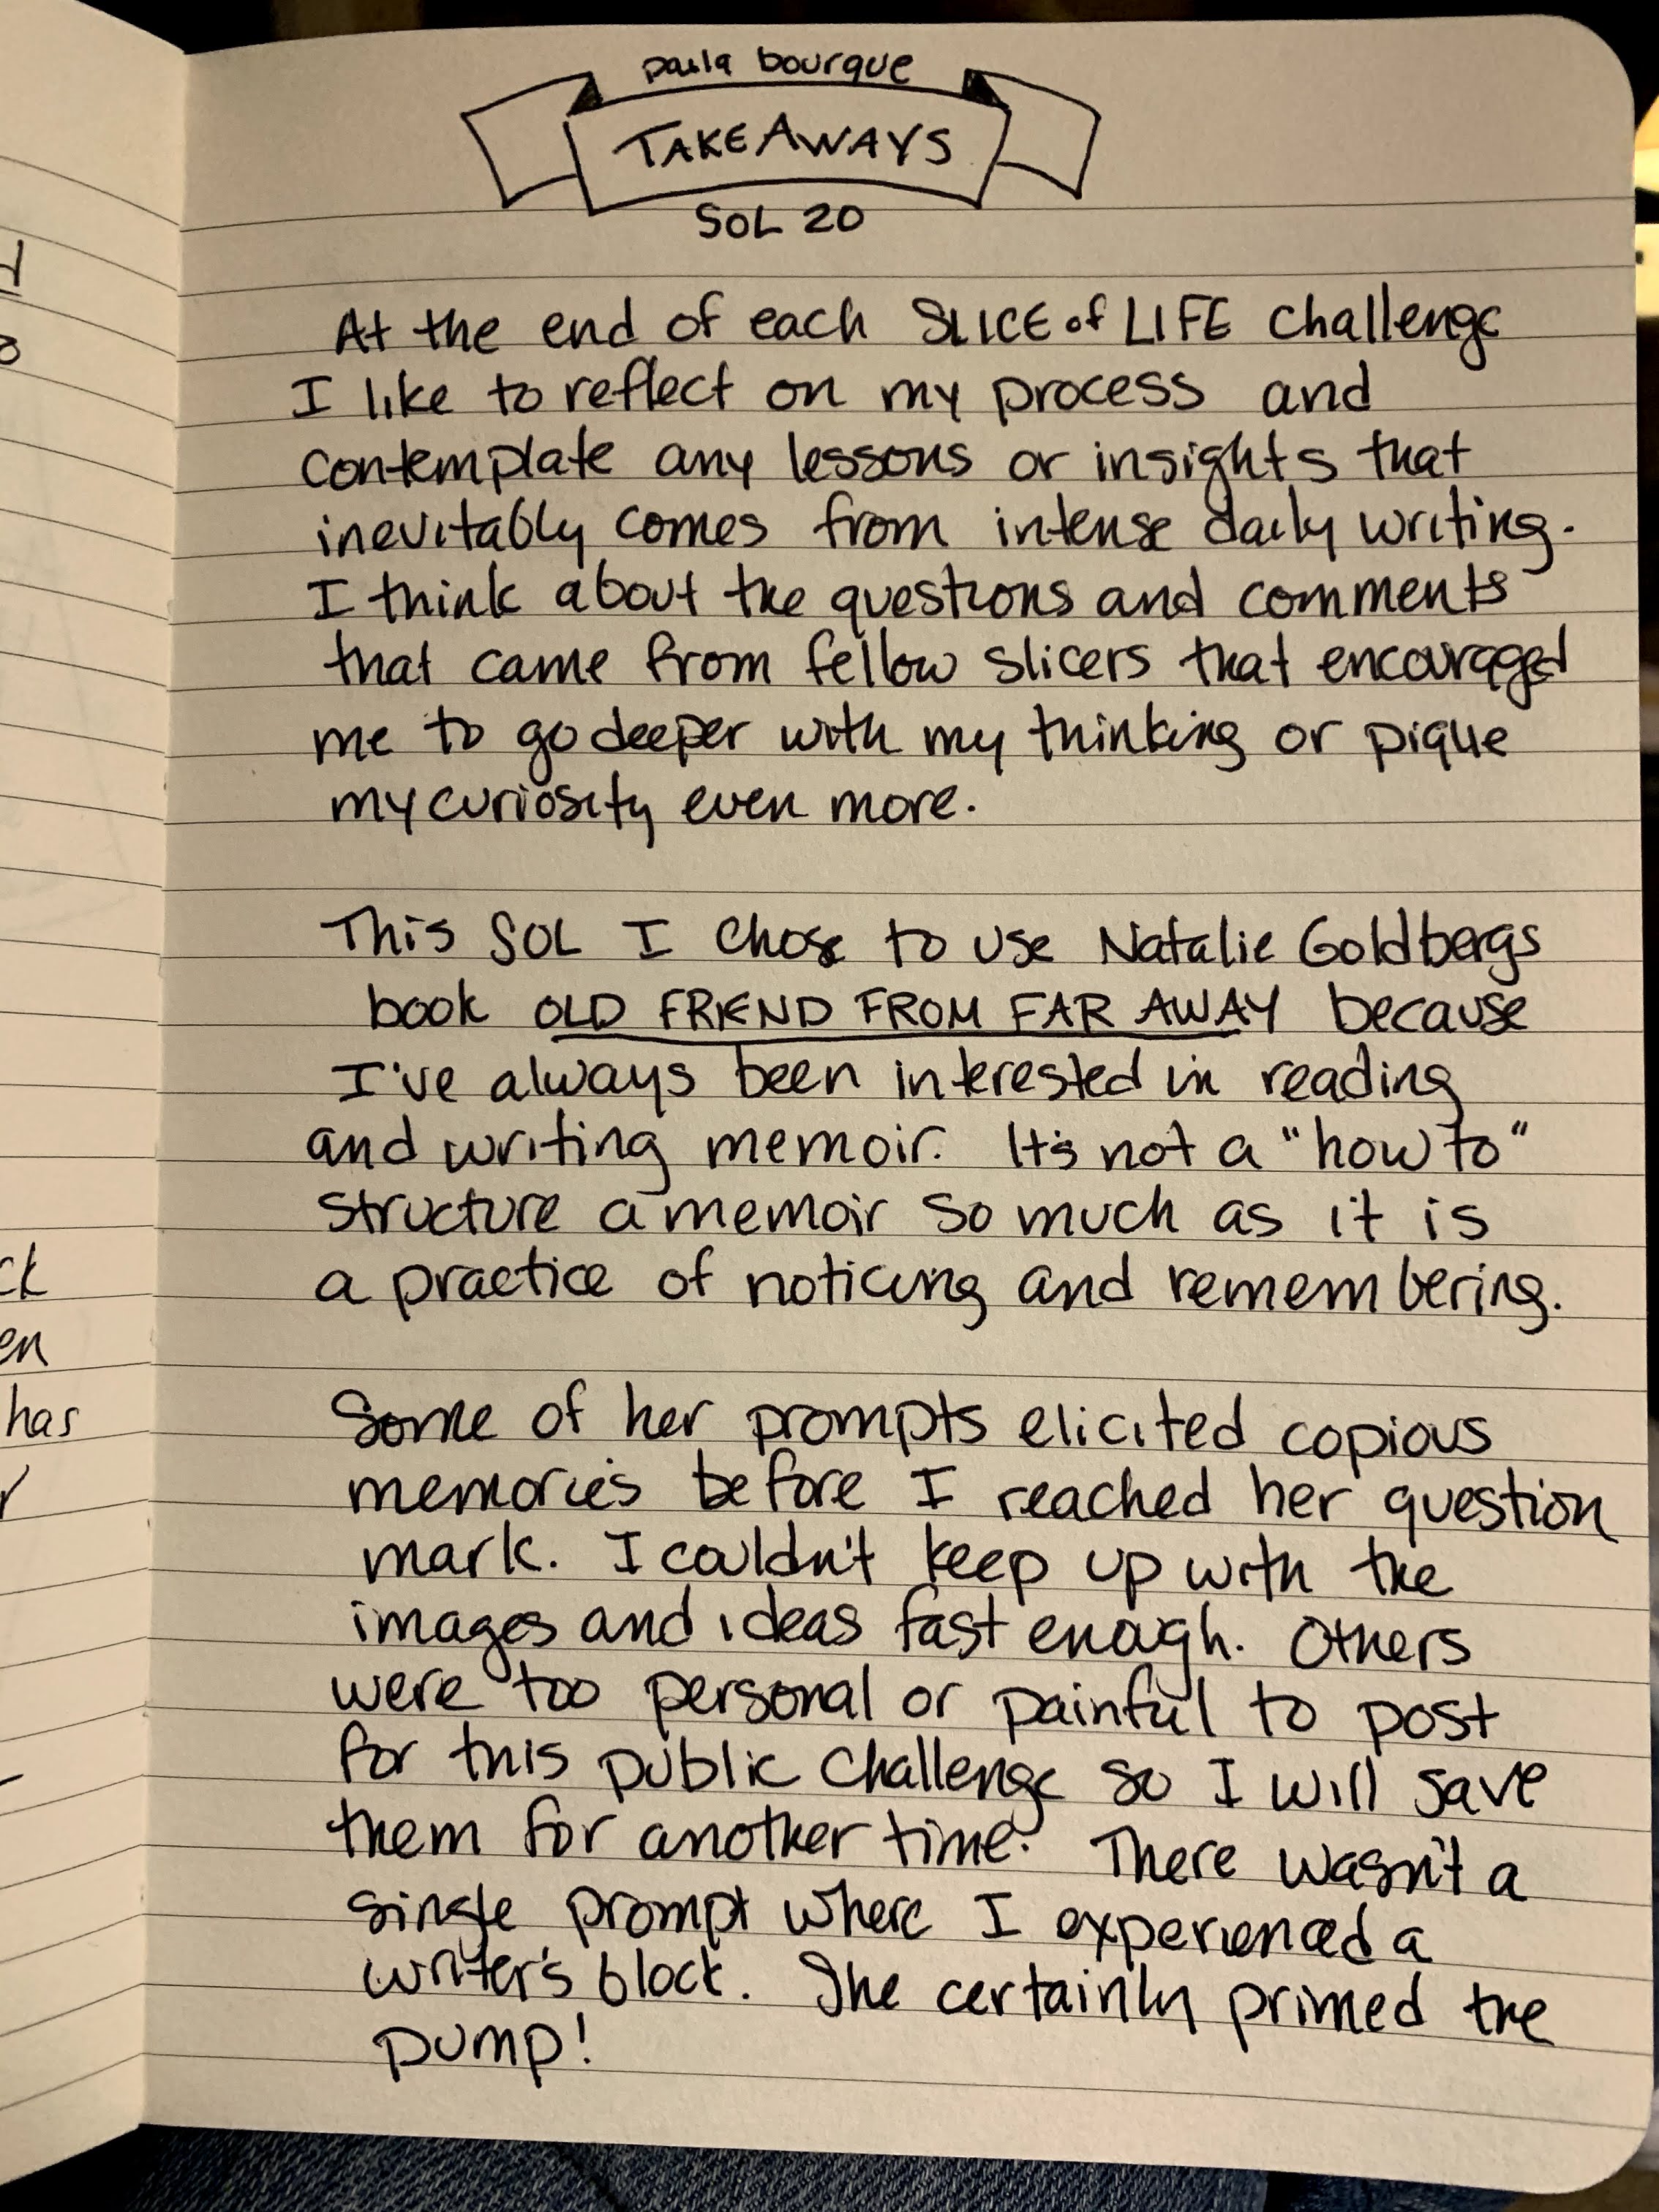 paula bourque
TAKEAWAYS
SOL 20
At the end of each SLICE of LIFE challenge
I like to reflect on my process and
contemplate any lessons or insights that
inevitably comes from intense daily writing.
I think about the questions and comments
that came from fellow slicers that encouraged
me to go deeper with my thinking or pique
my curiosity even more.
This SOL I chose to use Natalie Goldbergs
book OLD FRIEND FROM FAR AWAY because
I've always been interested in reading
and writing memoir. It's not a "how to"
structure a memoir so much as it is
a practice of noticing and remembering.
Some of her prompts elicited copious
memories before I reached her question
mark. I couldn't keep up with the
images and ideas fast enough. Others
were too personal or painful to post
for this public challenge so I will save
them for another time. There wasn't a
single prompt where I experienced a
writer's block. She certainly primed the
pump!
ck
en
has